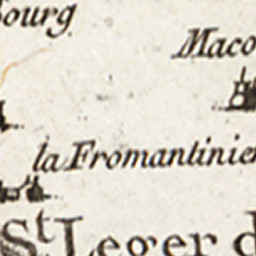 ourg
Maco
la Fromantinier
St Leger d